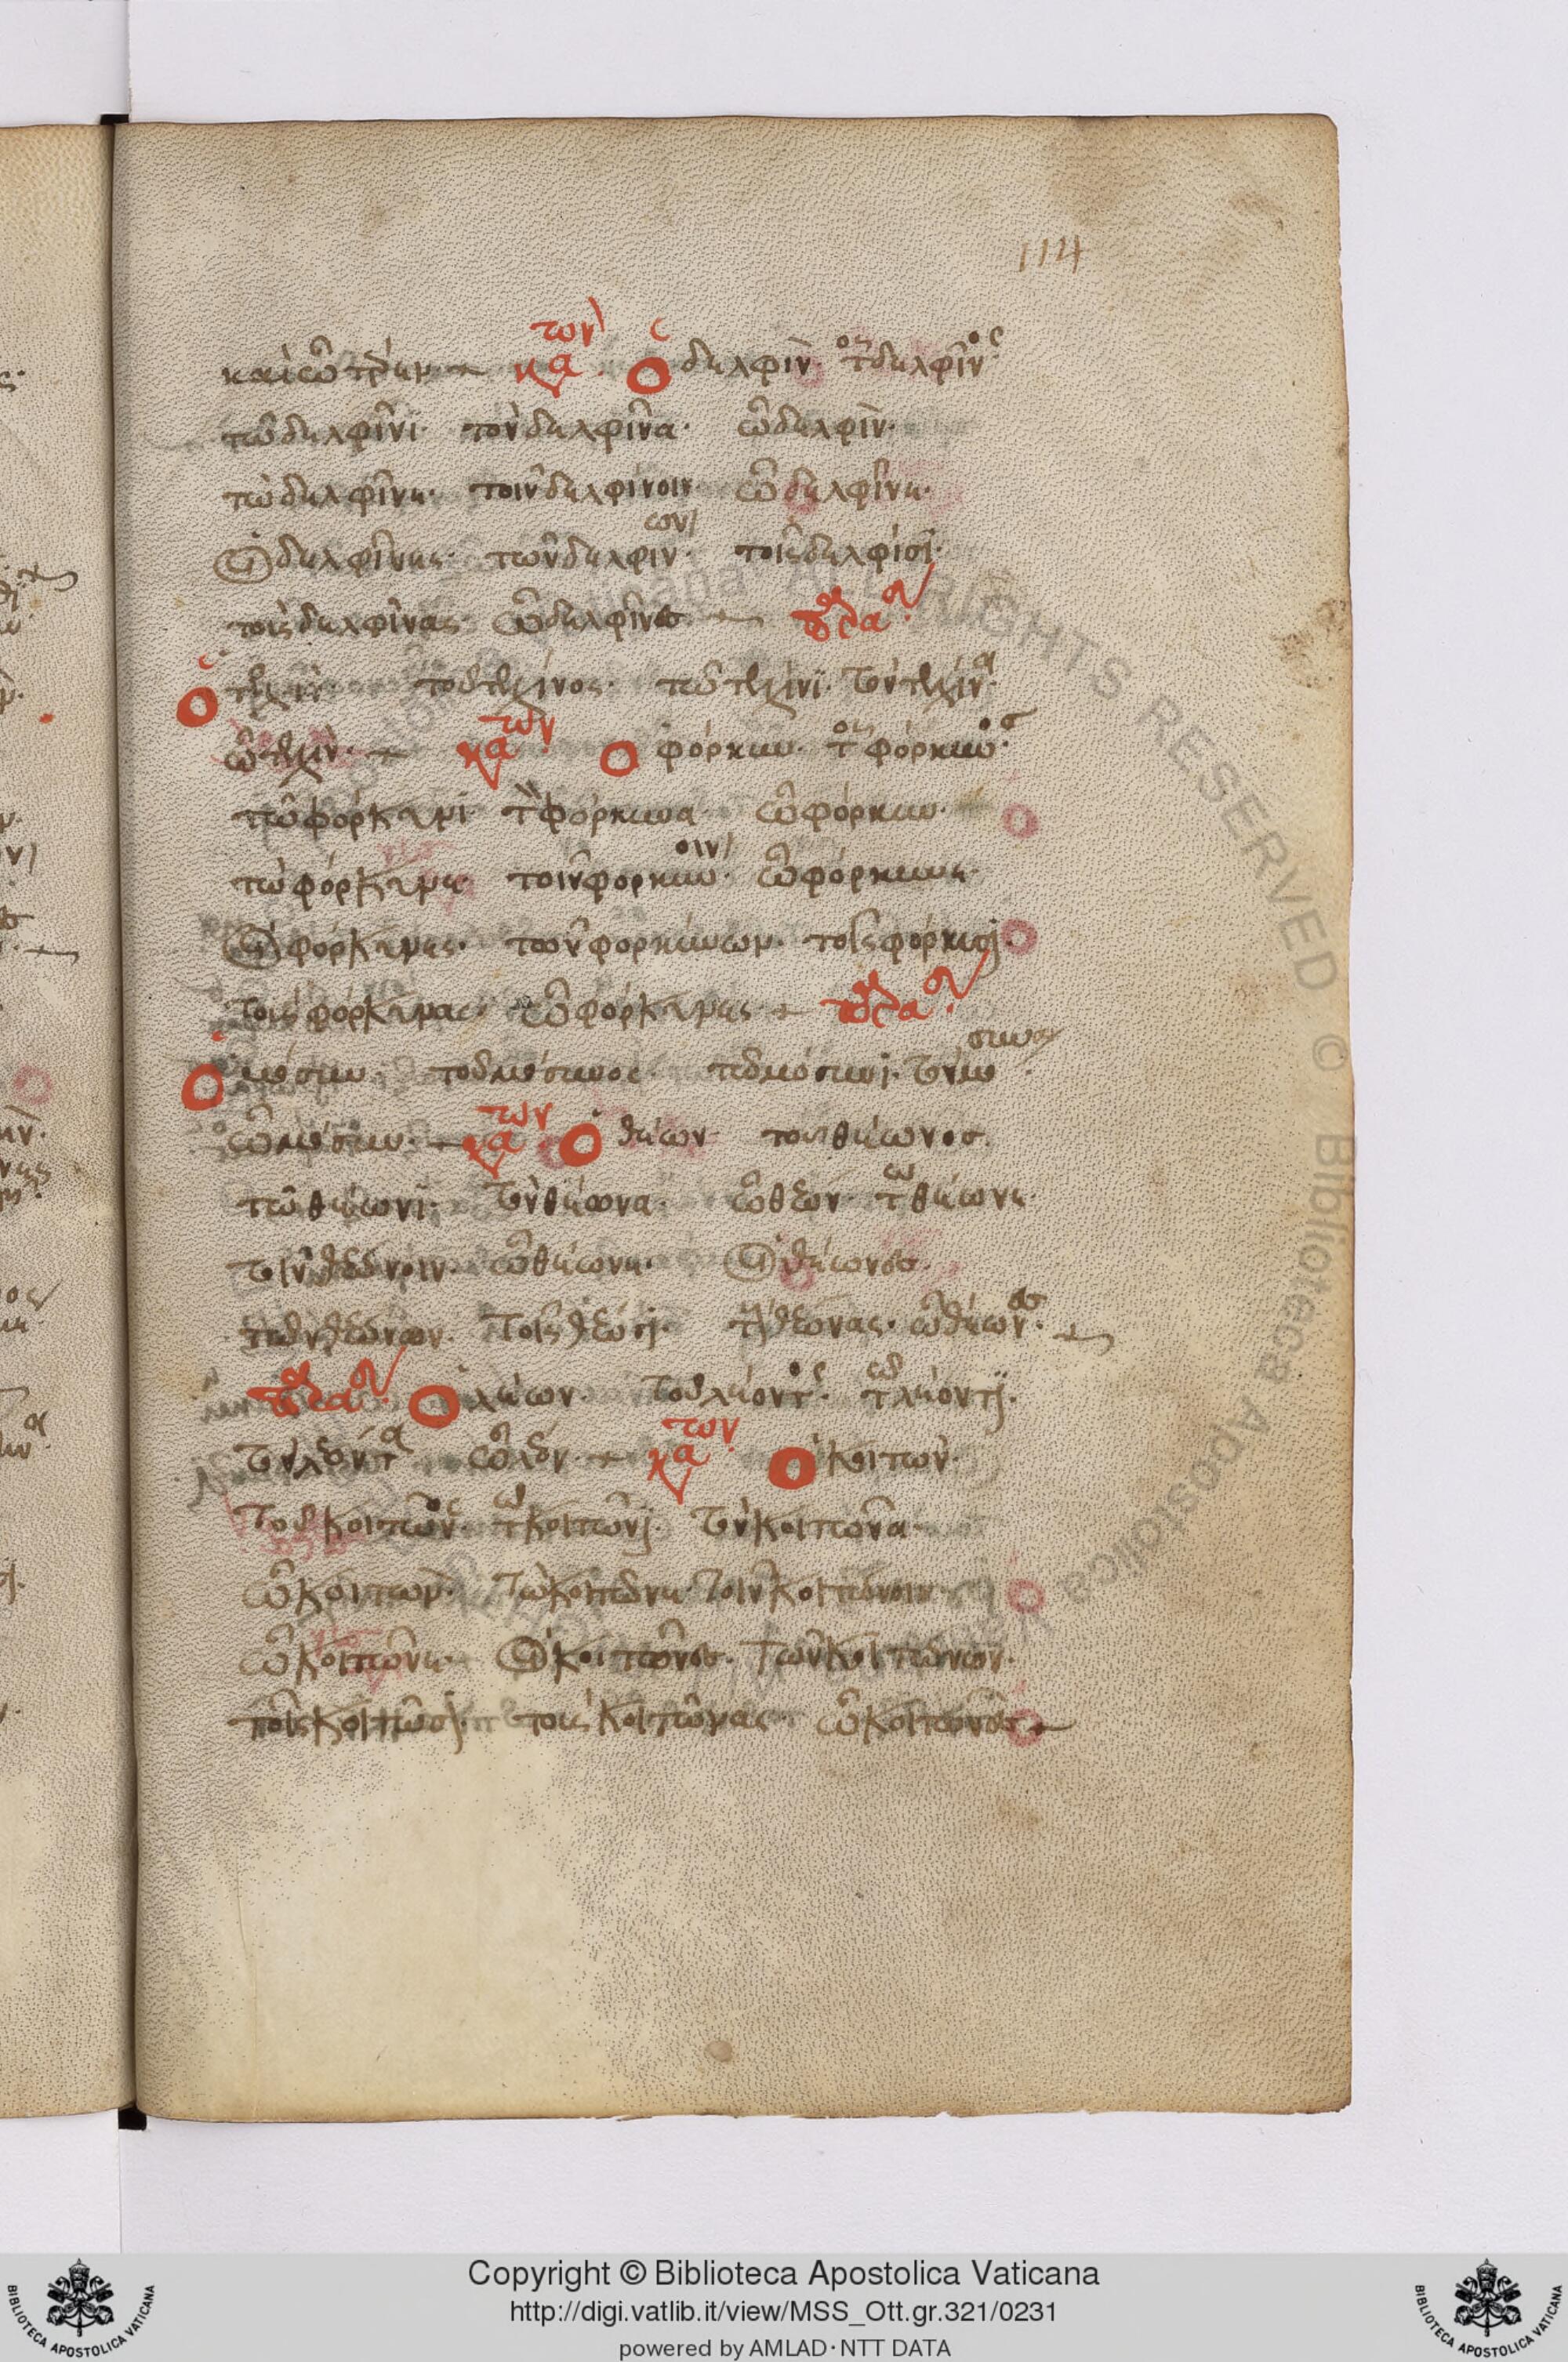 114
καὶ ὦ τέρεν κανὼν Ὁ δελφίν· τοῦ δελφῖνος·
τῶ δελφῖνι· τὸν δελφῖνα· ὦ δελφίν·
τὼ δελφῖνε· τοῖν δελφίνοιν· ὦ δελφῖνε·
Οἱ δελφῖνες· τῶν δελφίνων· τοῖς δελφῖσι·
τοὺς δελφῖνας· ὦ δελφῖνες
Ὁ τελχίν· τοῦ τελχίνος· τῶ τελχίνι· τὸν τελχίνα·
ὦ τελχίν· κανὼν Ὁ φόρκυν· τοῦ φόρκυνος·
τῶ φόρκυνι· τὸν φόρκυνα· ὦ φόρκυν·
τὼ φόρκυνε· τοῖν φορκύνοιν· ὦ φόρκυνε·
Οἱ φόρκυνες· τῶν φορκύνων· τοῖς φόρκυσι·
τοὺς φόρκυνας· ὦ φόρκυνες
Ὁ μόσυν· τοῦ μόσυνος· τῶ μόσυνι· τὸν μόσυνα·
ὦ μόσυν· κανὼν Ὁ θέων· τοῦ θέωνος·
τῶ θέωνι· τὸν θέωνα· ὦ θέων· τὼ θέωνε·
τοῖν θεώνοιν· ὦ θέωνε· Οἱ θέωνες·
τῶν θεώνων· τοῖς θέωσι· τοὺς θέωνας· ὦ θέωνες·
Ὁ λέων· τοῦ λέοντος· τῶ λέοντι·
τὸν λέοντα ὦ λέον· κανὼν Ὁ κοιτών·
τοῦ κοιτῶνος· τῶ κοιτῶνι· τὸν κοιτῶνα·
ὦ κοιτών· τὼ κοιτῶνε· τοῖν κοιτώνοιν·
ὦ κοιτῶνε· Οἱ κοιτῶνες· τῶν κοιτώνων·
τοῖς κοιτῶσι· τοὺς κοιτῶνας· ὦ κοιτῶνες
RIGHTS RESERVED © Biblioteca Apostolica
Copyright © Biblioteca Apostolica Vaticana
http://digi.vatlib.it/view/MSS_Ott.gr.321/0231
powered by AMLAD·NTT DATA
BIBLIOTECA APOSTOLICA VATICANA
BIBLIOTECA APOSTOLICA VATICANA